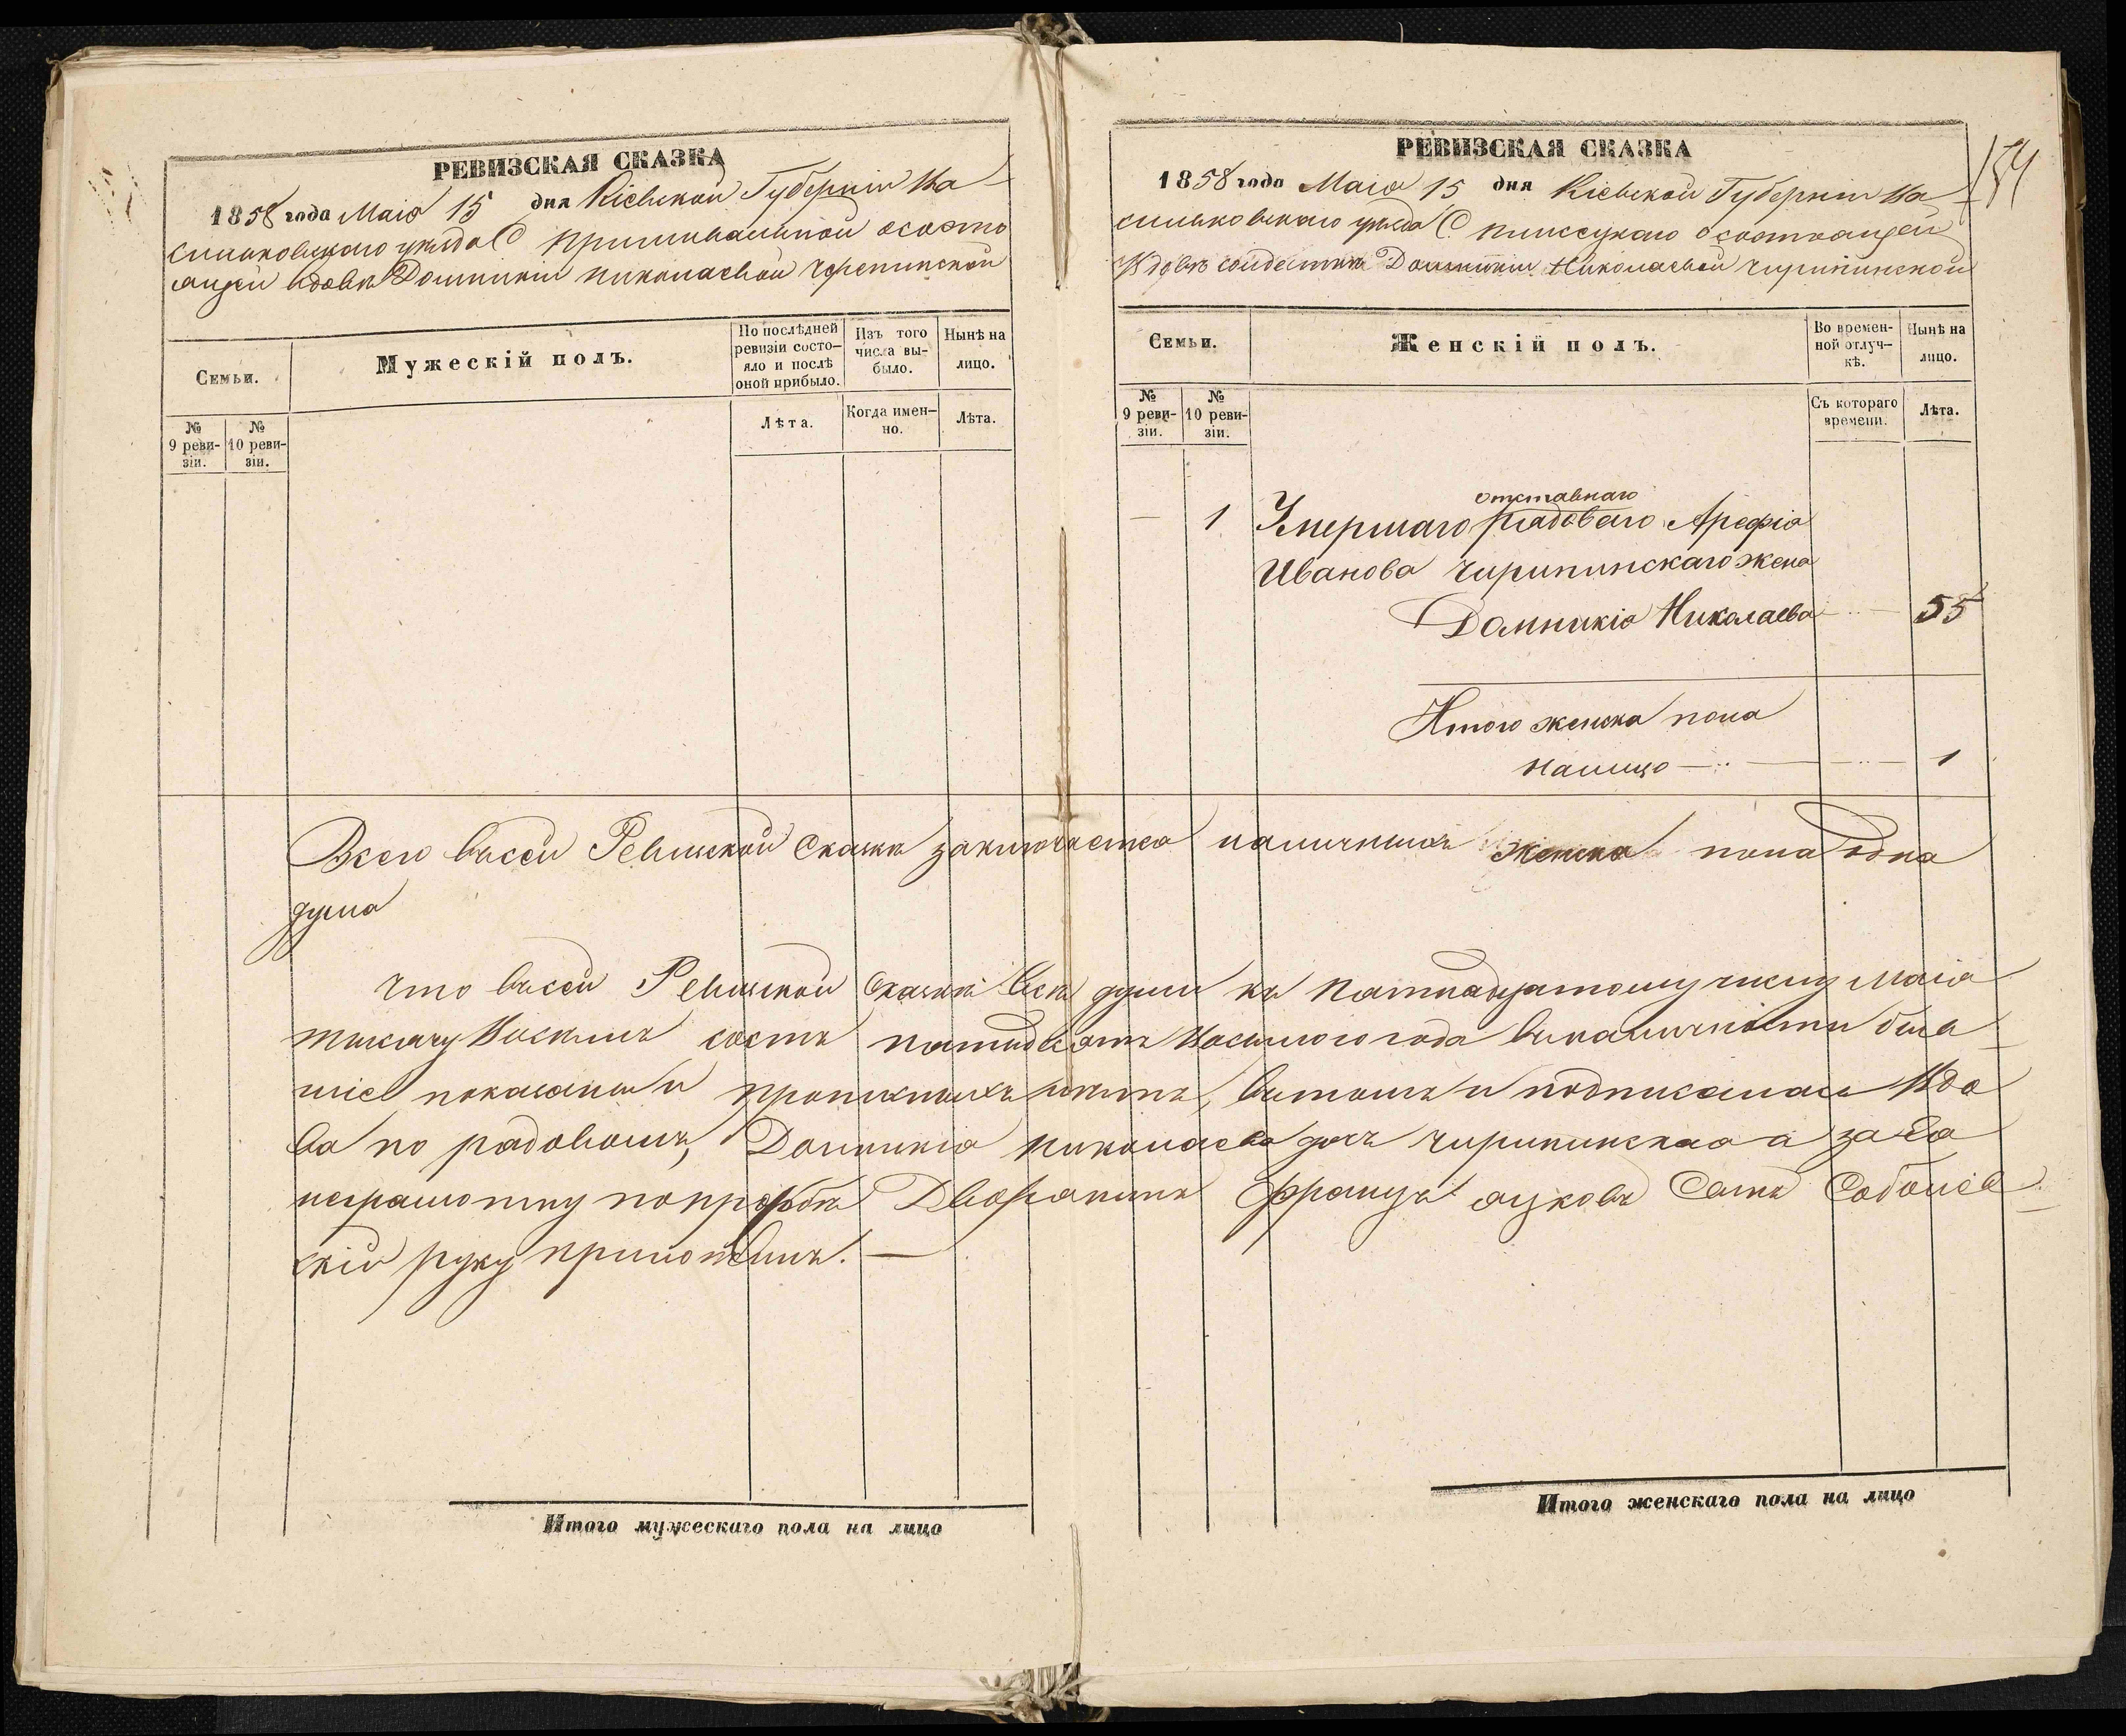 РЕВИЗСКАЯ СКАЗКА
1858 года Маія 15 дня Кіевской Губерніи Ва-
сильковскаго уѣзда С. осостоя
ащей вдовѣ Домникіи Николаевой Черепинской
Семьи.
Мужескій полъ.
По послѣдней ревизіи состо-яло и послѣ оной прибыло.
Изъ того числа вы-было.
Нынѣ на лицо.
№ 9 реви-зіи.
№ 10 реви-зіи.
Лѣта.
Когда имен-но.
Лѣта.
Итого мужескаго пола на лицо
РЕВИЗСКАЯ СКАЗКА
1858 года Маія 15 дня Кіевской Губерніи Ва-
сильковскаго уѣзда С. осостоящей
Вдовѣ Домникіи Николаевой Чирипинской
Семьи.
Женскій полъ.
Во времен-ной отлуч-кѣ.
Нынѣ на лицо.
№ 9 реви-зіи.
№ 10 реви-зіи.
Съ котораго времени.
Лѣта.
отставнаго
— 1 Умершаго рядоваго Арефія
Иванова Чирипинскаго жена
Домникія Николаева 55
Итого женска пола
налицо 1
Всего въсей Ревизской Сказкѣ заключается наличныхъ женска пола одна
душа
Что въсей Ревизской Сказкѣ всѣ души къ пятнадцатому числу Маія
тысячу Восемь сотъ пятидесятъ Восьмого года въналичности быв-
шіе показаны и нѣтъ, вътомъ и подписалась Вдо
ва по рядовомъ, Домникія Николаева дочь Чирипинская а за ея
неграмотну попрозбѣ Дворянинъ Францъ Сынъ Соболев-
скій руку приложилъ. —
Итого женскаго пола на лицо